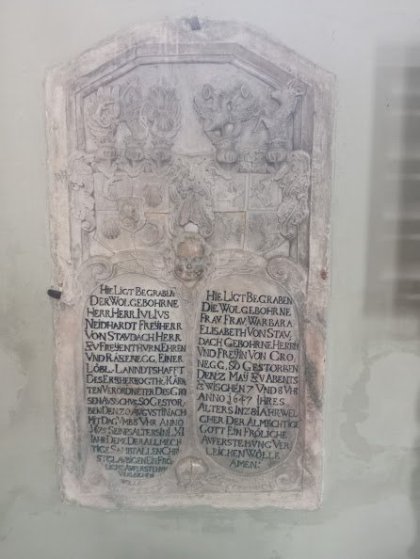 HIE LIGT BEGRABEN
DER WOLGEBOHRNE
HERR HERR IVLIVS
NEIDHARDT FREYHERR
VON STAVDACH HERR
ZV FREYENTHVRN EHREN
VND RASENEGG EINER
LÖBL: LANNDTSHAFFT
DES ERZHERZOGTH: KÄRN
TEN VERORDNETER DES GRO
SEN AVSSCHVS SO GESTOR
BEN DEN 29 AVGVSTI NACH
MITTAG VMB 8 VHR ANNO
SEINES ALTERS IN
IAHR DEME DER ALMECH
TIGE SAMBT ALLEN CHRI
STGLAVBIGEN EIN FRÖ
LICHE AVFERSTEHVNG
VERLEICHEN
WÖLLE
HIE LIGT BEGRABEN
DIE WOLGEBOHRNE
FRAV FRAV WARBARA
ELISABETH VON STAV
DACH GEBOHRNE HERRIN
VND FREYIN VON CRO
NEGG, SO GESTORBEN
DEN 2 MAY ZV ABENTS
ZWISCHEN 7 VND 8 VHR
ANNO 1647 IHRES
ALTERS IN 28 IAHR WEL
CHER DER ALMECHTIGE
GOTT EIN FRÖLICHE
AVFERSTEHVNG VER
LEICHEN WÖLLE
AMEN: